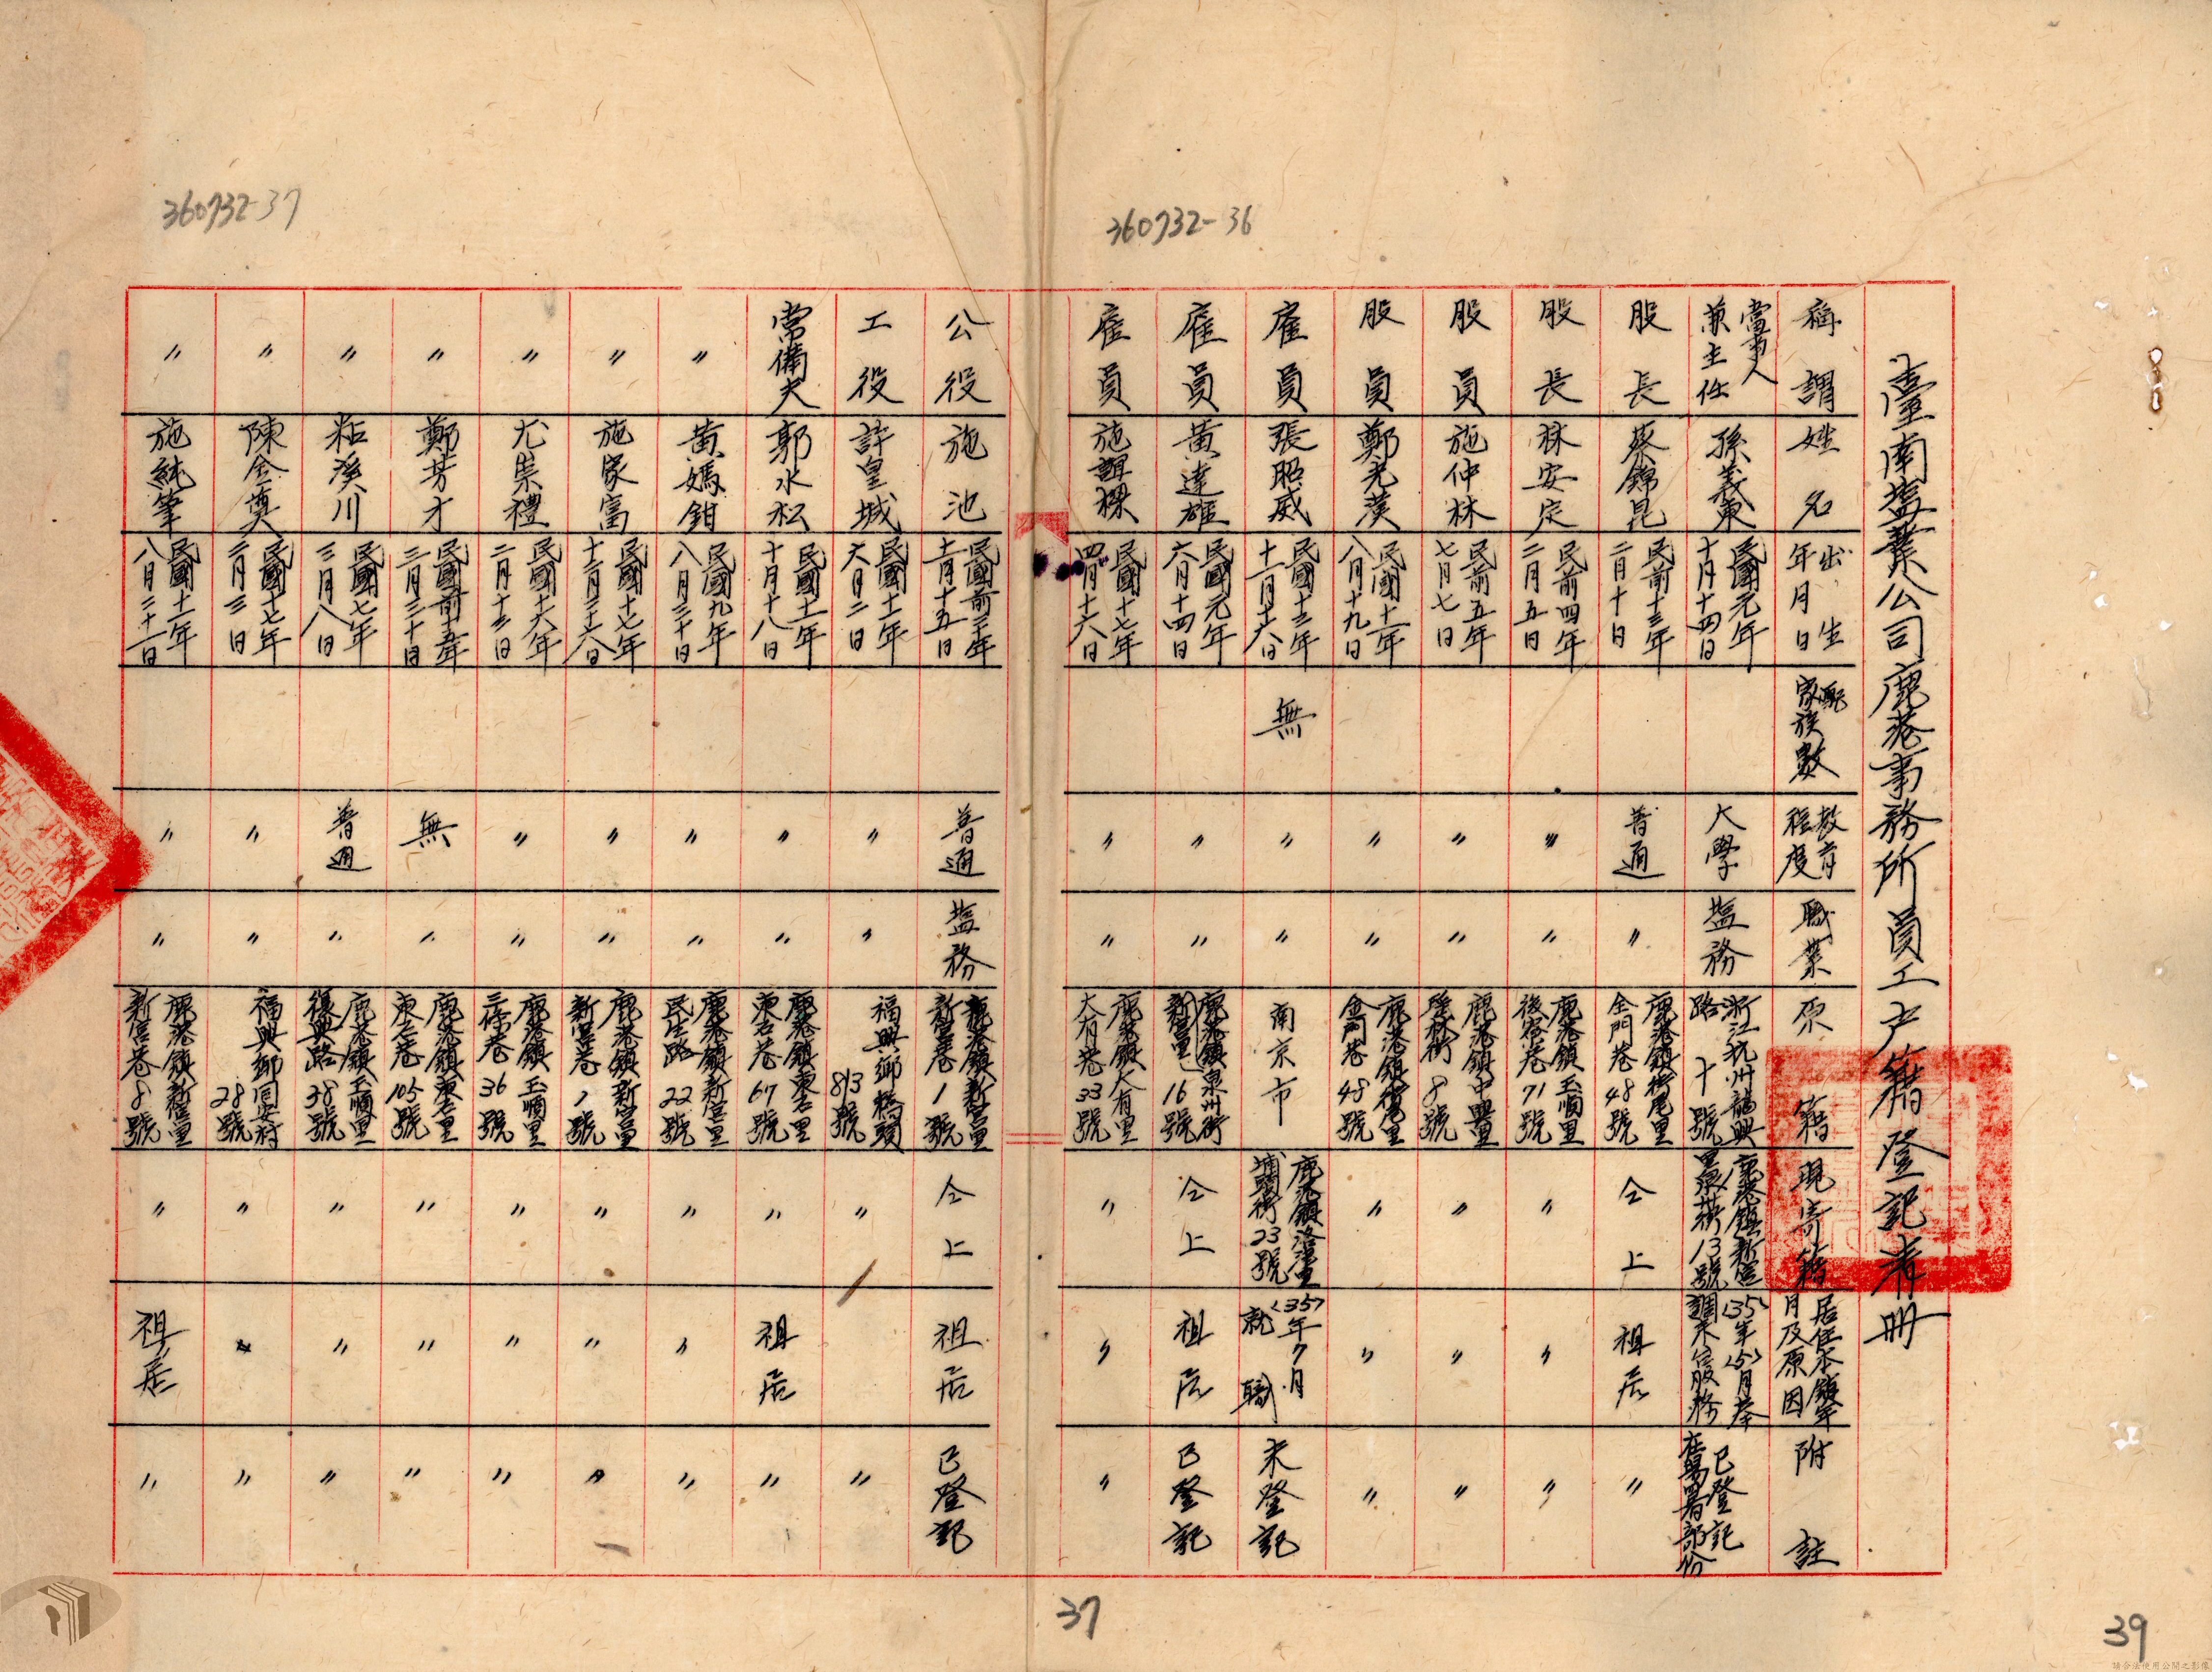 360732-36
臺南塩業公司鹿港事務所員工戶籍登記清冊
稱謂 姓名 出生年月日 配家族數 教育程度 職業 原籍 現寄籍 居住本鎮年月及原因 附註
當事人兼主任 孫義東 民國元年十月十四日 大學 塩務 浙江杭州龍興路十號 鹿港鎮新宮里泉州街13號 <35>年<5>月奉調來台服務 已登記在萬署部份
股長 蔡錦昆 民前十三年二月十日 普通 〃 鹿港鎮街尾里金門巷48號 仝上 祖居 〃
股長 林安定 民前四年二月五日 〃 〃 鹿港鎮玉順里後宅巷71號 〃 〃 〃
股員 施仲林 民前五年七月七日 〃 〃 鹿港鎮中興里陞林街8號 〃 〃 〃
股員 鄭光漢 民國十一年八月十九日 〃 〃 鹿港鎮街尾里金門巷48號 〃 〃 〃
雇員 張昭威 民國十三年十一月十六日 無 〃 〃 南京市 鹿港鎮洛津里埔頭街23號 <35>年7月就職 未登記
雇員 黃達雄 民國元年六月十四日 〃 〃 鹿港鎮泉州街(新宮里)16號 仝上 祖居 已登記
雇員 施謀 民國十七年四月十六日 〃 〃 鹿港鎮大有里大有巷33號 〃 〃 〃
37
39
360732-37
公役 施池 民國前二年十一月十五日 普通 塩務 鹿港鎮新宮里新宮巷1號 仝上 祖居 已登記
工役 許皇城 民國十一年六月二日 〃 〃 福興鄉橋頭813號 〃 〃
常備夫 郭水松 民國十一年十月十八日 〃 〃 鹿港鎮東石里東石巷67號 〃 祖居 〃
〃 黃媽鉗 民國九年八月三十日 〃 〃 鹿港鎮新宮里民生路22號 〃 〃 〃
〃 施家富 民國十七年十二月二十六日 〃 〃 鹿港鎮新宮里新宮巷1號 〃 〃 〃
〃 尤崇禮 民國十六年二月十三日 〃 〃 鹿港鎮玉順里三條巷36號 〃 〃 〃
〃 鄭芳才 民國前十五年三月三十日 無 〃 鹿港鎮東石里東石巷105號 〃 〃 〃
〃 粘溪川 民國七年三月八日 普通 〃 鹿港鎮玉順里復興路38號 〃 〃 〃
〃 陳金奠 民國十七年二月三日 〃 〃 福興鄉同安村28號 〃 〃 〃
〃 施純筆 民國十一年八月二十一日 〃 〃 鹿港鎮新宮里新宮巷8號 〃 祖居 〃
請合法使用公開之影像